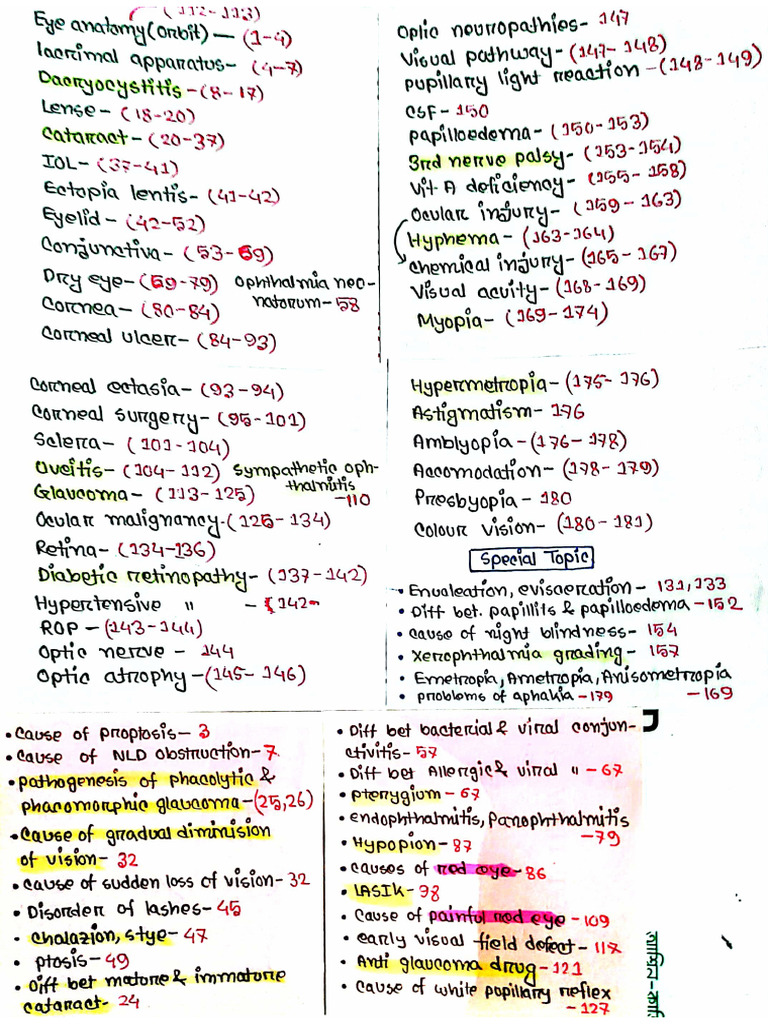 (112-113)
Eye anatomy (orbit) — (1-4)
lacrimal apparatus- (4-7)
Dacryocystitis -(8-17)
Lense- (18-20)
Cataract - (20-37)
IOL- (37-41)
Ectopia lentis- (41-42)
Eyelid - (42-52)
Conjunctiva - (53-69)
Dry eye- (69-79) Ophthalmia neo-
natorum-58
Cornea- (80-84)
Corneal ulcer- (84-93)
Optic neuropathies- 147
Visual pathway- (147-148)
pupillary light reaction -(148-149)
CSF- 150
papilloedema- (150-153)
3rd nerve palsy- (153-154)
Vit A deficiency- (155-158)
Ocular injury- (159-163)
Hyphema - (163-164)
chemical injury- (165-167)
Visual acuity- (168-169)
Myopia- (169-174)
Corneal ectasia- (93-94)
Corneal surgery- (95-101)
Sclera- (101-104)
Uveitis- (104-112) sympathetic oph-
thalmitis
-110
Glaucoma- (113-125)
Ocular malignancy-(125-134)
Retina- (134-136)
Diabetic retinopathy- (137-142)
Hypertensive " - 142
ROP - (143-144)
Optic nerve- 144
Optic atrophy-(145-146)
Hypermetropia- (175-176)
Astigmatism- 176
Amblyopia -(176-178)
Accomodation- (178-179)
Presbyopia- 180
Colour vision- (180-181)
Special Topic
• Enucleation, evisceration - 131,133
• Diff bet. papillits & papilloedema -152
• cause of night blindness- 154
• Xerophthalmia grading- 157
• Emetropia, Ametropia, Anisometropia
-169
• problems of aphakia -179
• Cause of proptosis- 3
• Cause of NLD obstruction-7
• pathogenesis of phacolytic &
phacomorphic glaucoma-(25,26)
• Cause of gradual diminision
of vision- 32
• cause of sudden loss of vision-32
• Disorder of lashes-45
• chalazion, stye- 47
• ptosis- 49
• Diff bet mature & immature
cataract- 24
• Diff bet bacterial & viral conjun-
ctivitis- 57
• Diff bet Allergic & viral " - 67
• pterygium- 67
• endophthalmitis, panophthalmitis
-79
• Hypopion- 87
• causes of red eye- 86
• LASIK- 98
• Cause of painful red eye -109
• early visual field defect- 117
• Anti glaucoma drug-121
• Cause of white pupillary reflex
-127